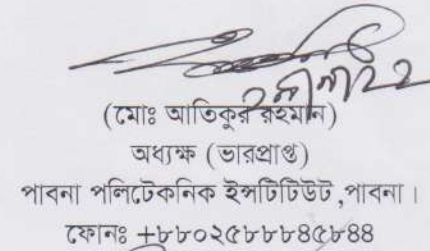 (মোঃ আতিকুর রহমান)
অধ্যক্ষ (ভারপ্রাপ্ত)
পাবনা পলিটেকনিক ইন্সটিটিউট ,পাবনা ।
ফোনঃ +৮৮০২৫৮৮৮৪৫৮৪৪